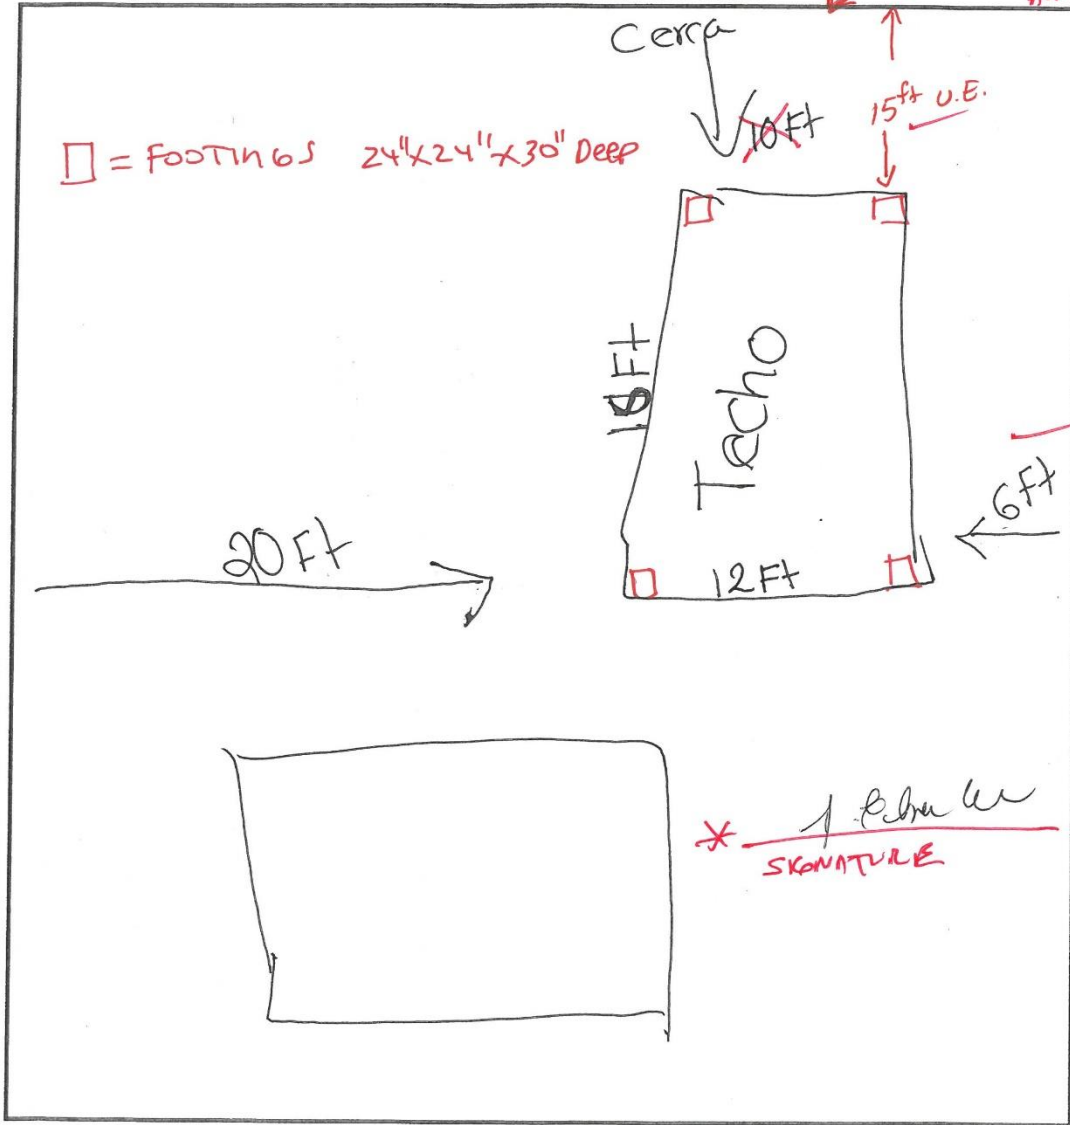 Cerca
10 Ft
15 ft U.E.
= FOOTINGS 24"X24"X30" Deep
18 Ft
Techo
6 Ft
20 Ft
12 Ft
*
SIGNATURE